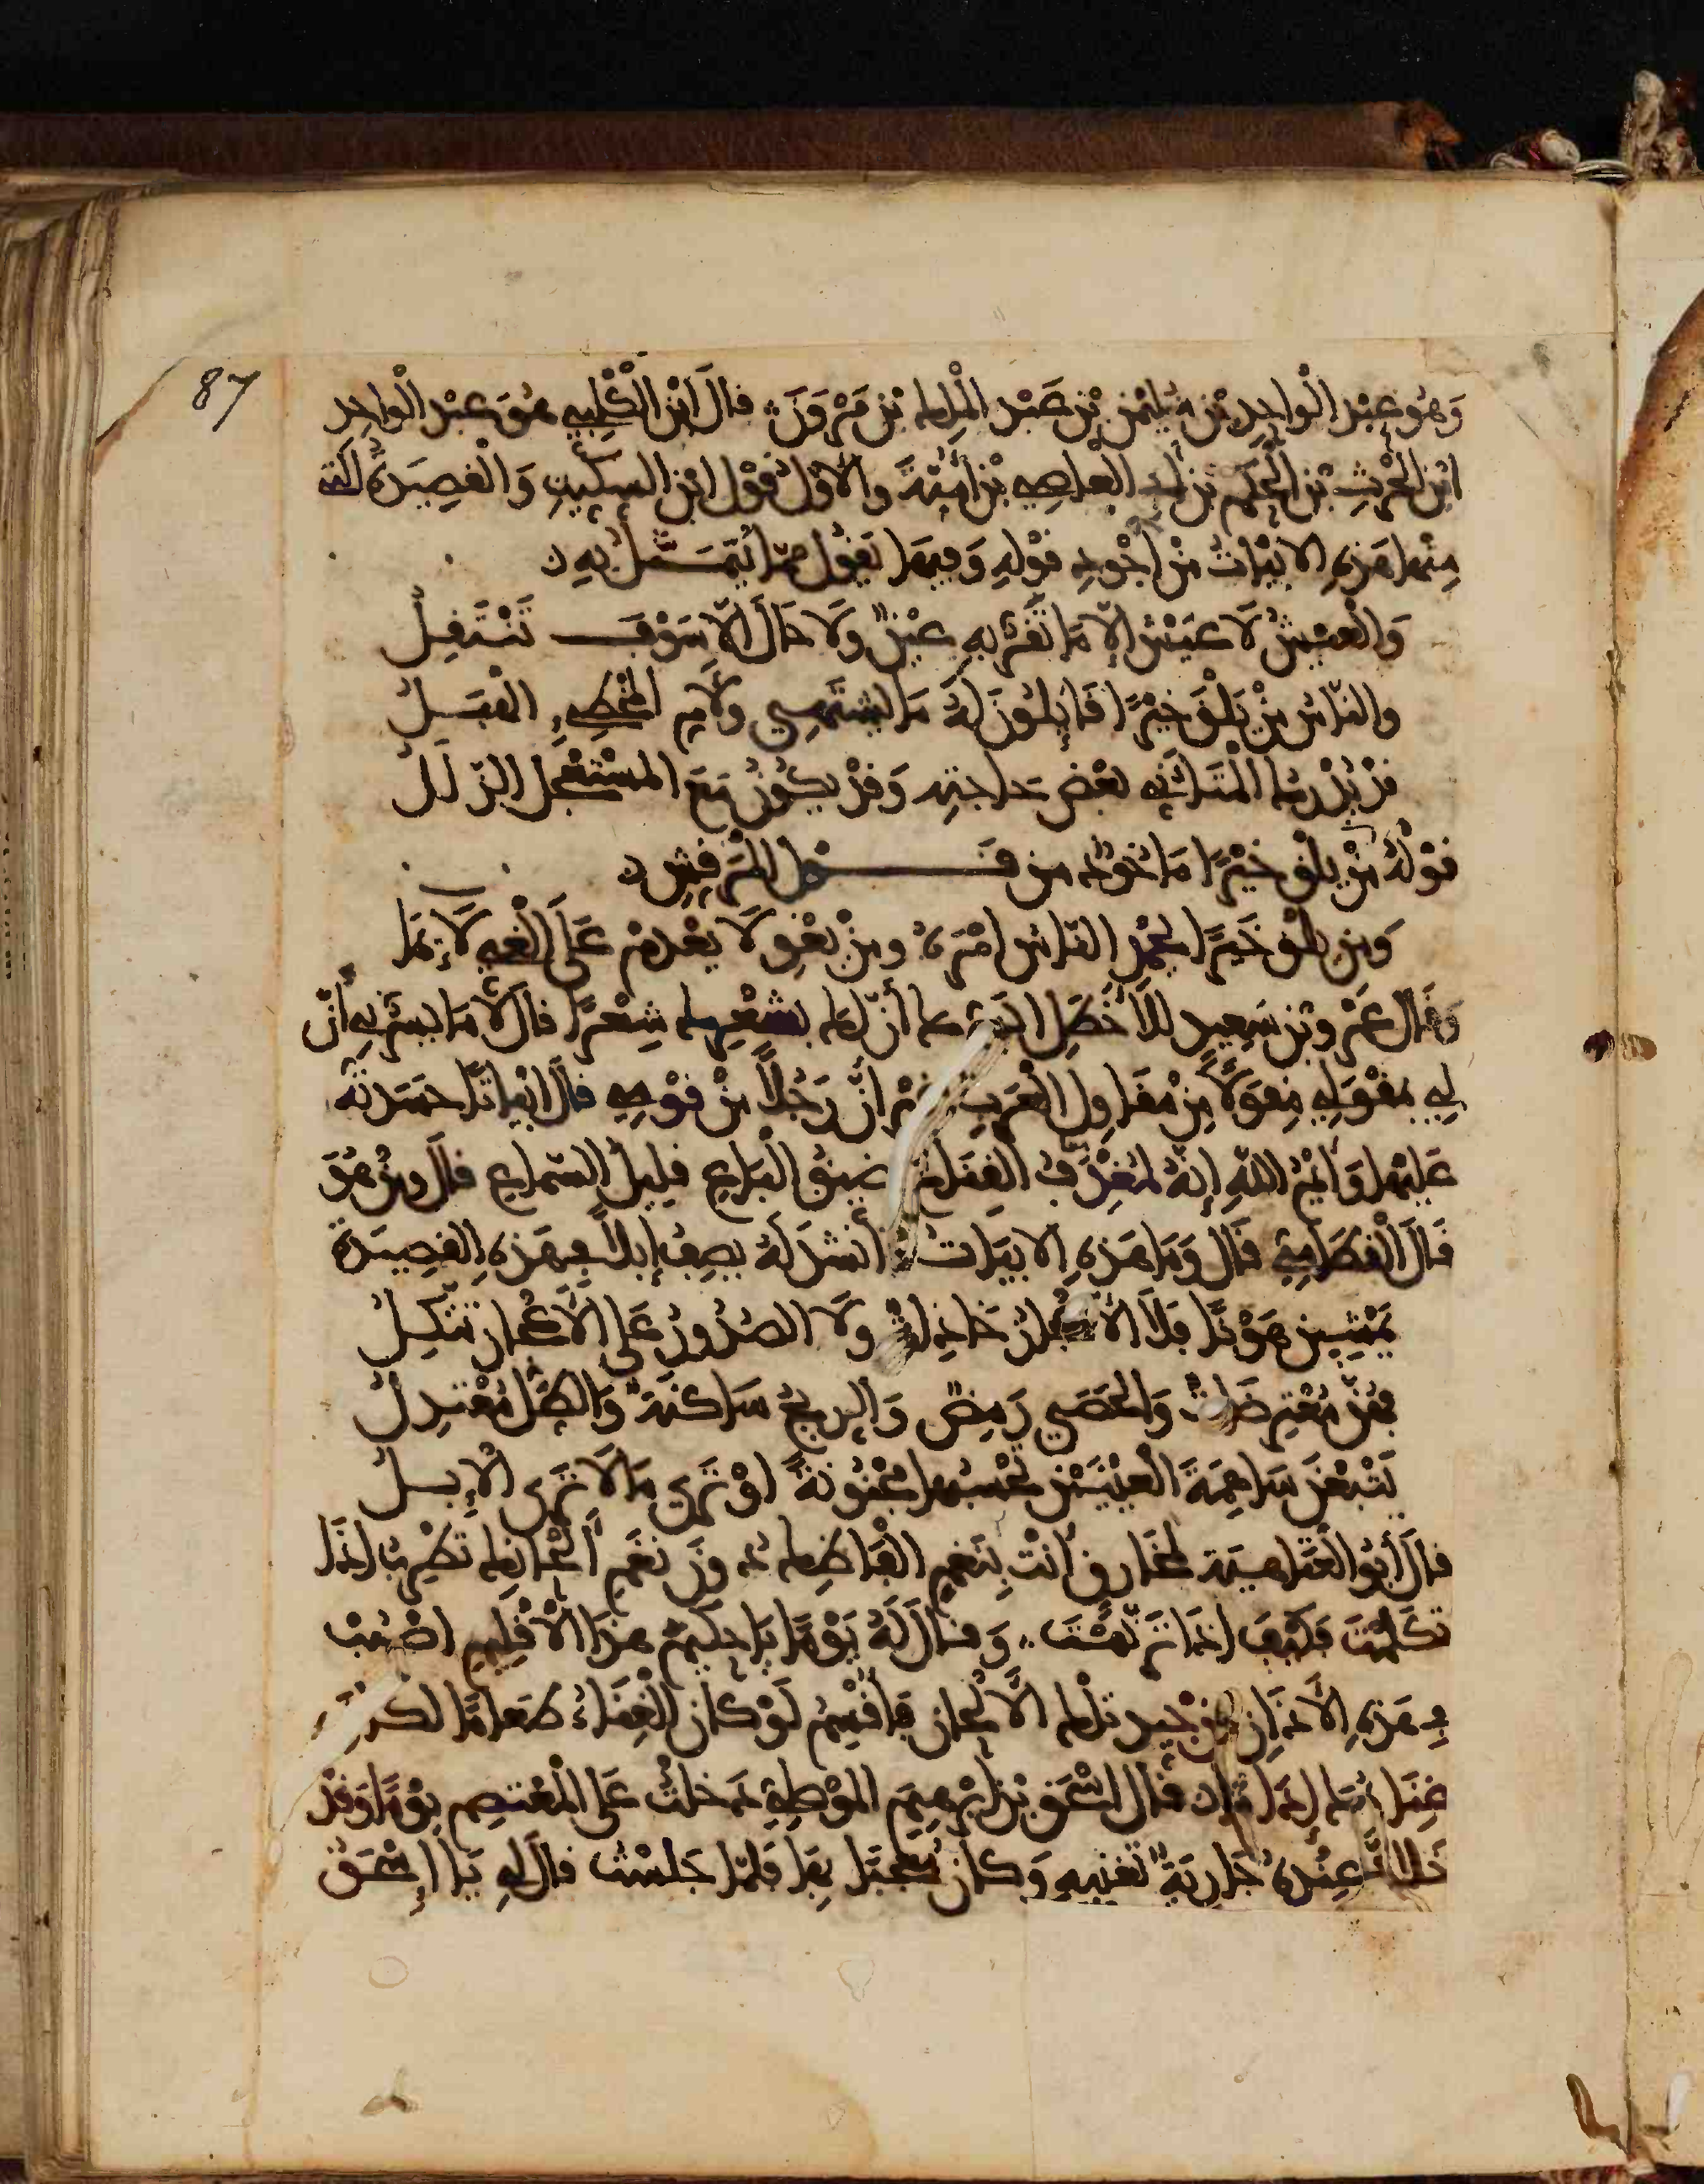 87
وَهُوَ عَبْدُ الْوَاحِدِ بْنِ سُلَيْمٰنَ بْنِ عَبْدِ الْمَلِكِ بْنِ مَرْوَنَ قَالَ ابْنُ الْكَلْبِيِّ هُوَ عَبْدُ الْوَاحِدِ
ابْنُ الْحٰرِثِ بْنِ الْحَكَمِ بْنِ أَبِي الْعَاصِي بْنِ أُمَيَّةَ وَالْأَوَّلُ قَوْلُ ابْنِ السِّكِّيتِ وَالْقَصِيدَةُ الَّتِي
مِنْهَا هَذِهِ الْأَبْيَاتُ مِنْ أَجْوَدِ قَوْلِهِ وَفِيهَا يَقُولُ مِمَّا يُتَمَثَّلُ بِهِ
وَالْعَيْشُ لَا عَيْشَ إِلَّا مَا تَقَرُّ بِهِ عَيْنٌ وَلَا حَالَ إِلَّا سَوْفَ تَنْتَقِلُ
وَالنَّاسُ مَنْ يَلْقَ خَيْرًا قَايِلُونَ لَهُ مَا يَشْتَهِي وَلِأُمِّ الْمُخْطِيءِ الْهَبَلُ
قَدْ يُدْرِكُ الْمُتَأَنِّي بَعْضَ حَاجَتِهِ وَقَدْ يَكُونُ مَعَ الْمُسْتَعْجِلِ الزَّلَلُ
قَوْلُهُ مَنْ يَلْقَ خَيْرًا مَاخُوذٌ مِنْ قَوْلِ الْمُرَقِّشِ
وَمَنْ يَلْقَ خَيْرًا يَحْمَدِ النَّاسُ أَمْرَهُ وَمَنْ يَغْوِ لَا يَعْدَمْ عَلَى الْغَيِّ لَائِمَا
وَقَالَ عَمْرُو بْنُ سَعِيدٍ لِلْأَخْطَلِ أَيَسُرُّكَ أَنَّ لَكَ بِشِعْرِكَ شِعْرًا قَالَ لَا مَا يَسُرُّنِي أَنَّ
لِي بِمِقْوَلِي مِقْوَلًا مِنْ مَقَاوِلِ الْعَرَبِ غَيْرَ أَنَّ رَجُلًا مِنْ قَوْمِي قَالَ أَبْيَاتًا حَسَدْتُهُ
عَلَيْهَا وَايْمُ اللهِ إِنَّهُ لَمُغْدَفُ الْقِنَاعِ ضَيِّقُ الْبَاعِ قَلِيلُ السَّمَاعِ قَالَ وَمَنْ هُوَ
قَالَ الْقُطَامِيُّ قَالَ وَمَا هَذِهِ الْأَبْيَاتُ فَأَنْشَدَ لَهُ يَصِفُ إِبِلًا فِي هَذِهِ الْقَصِيدَةِ
يَمْشِينَ هَوْنًا فَلَا الْأَعْجَازُ خَاذِلَةٌ وَلَا الصُّدُورُ عَلَى الْأَعْجَازِ تَتَّكِلُ
فَهُنَّ مُعْتَرِضَاتٌ وَالْحَصَى رَمِضٌ وَالرِّيحُ سَاكِنَةٌ وَالظِّلُّ مُعْتَدِلُ
يَتْبَعْنَ سَامِيَةَ الْعَيْنَيْنِ تَحْسِبُهَا مَجْنُونَةً أَوْ تُرَى مَا لَا تَرَى الْإِبِلُ
قَالَ أَبُو الْعَتَاهِيَةِ لِمُخَارِقٍ أَنْتَ بِنَغَمِ أَلْفَاظِكَ دُونَ نَغَمِ أَلْحَانِكَ تُطْرِبُ إِذَا
تَكَلَّمْتَ فَكَيْفَ إِذَا تَرَنَّمْتَ وَقَالَ لَهُ يَوْمًا يَا حَكِيمَ هَذَا الْإِقْلِيمِ اصْبُبْ
فِي هَذِهِ الْآذَانِ مِنْ جَيِّدِ تِلْكَ الْأَلْحَانِ فَأُقْسِمُ لَوْ كَانَ الْغِنَاءُ طَعَامًا لَكَانَ
غِنَاؤُكَ إِدَامًا قَالَ إِسْحٰقُ بْنُ إِبْرٰهِيمَ الْمَوْصِلِيُّ دَخَلْتُ عَلَى الْمُعْتَصِمِ يَوْمًا وَقَدْ
خَلَا وَعِنْدَهُ جَارِيَةٌ تُغَنِّيهِ وَكَانَ مُعْجَبًا بِهَا فَلَمَّا جَلَسْتُ قَالَ لِي يَا إِسْحٰقُ